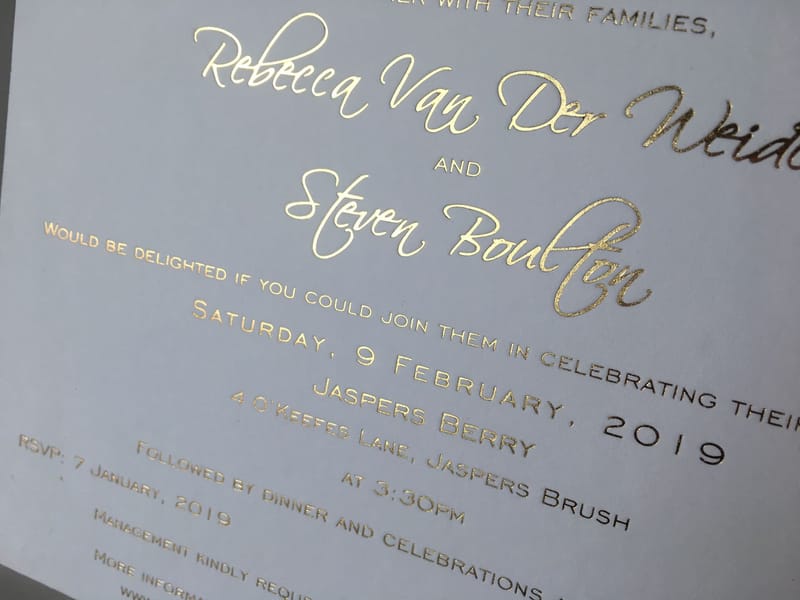 WITH THEIR FAMILIES,
Rebecca Van Der
AND
Steven Boulton
WOULD BE DELIGHTED IF YOU COULD JOIN THEM IN CELEBRATING THEIR
SATURDAY, 9 FEBRUARY, 2019
JASPERS BERRY
4 O'KEEFES LANE, JASPERS BRUSH
AT 3:30PM
FOLLOWED BY DINNER AND CELEBRATIONS
RSVP: 7 JANUARY, 2019
MANAGEMENT KINDLY
MORE